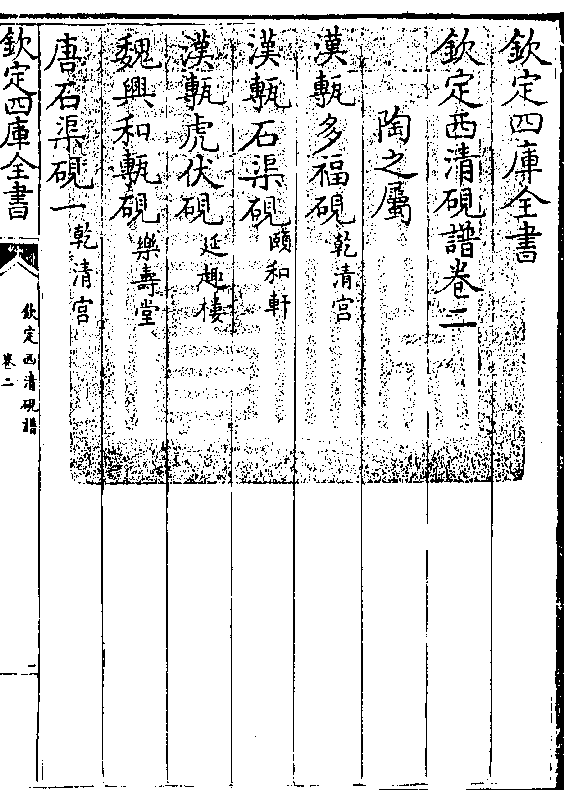 欽定四庫全書
欽定西清硯譜卷二
陶之屬
漢甎多福硯 乾清宮
漢甎石渠硯 頤和軒
漢甎虎伏硯 延趣樓
魏興和甎硯 樂壽堂
唐石渠硯一 乾清宮
欽定四庫全書
欽定西清硯譜
卷二
一